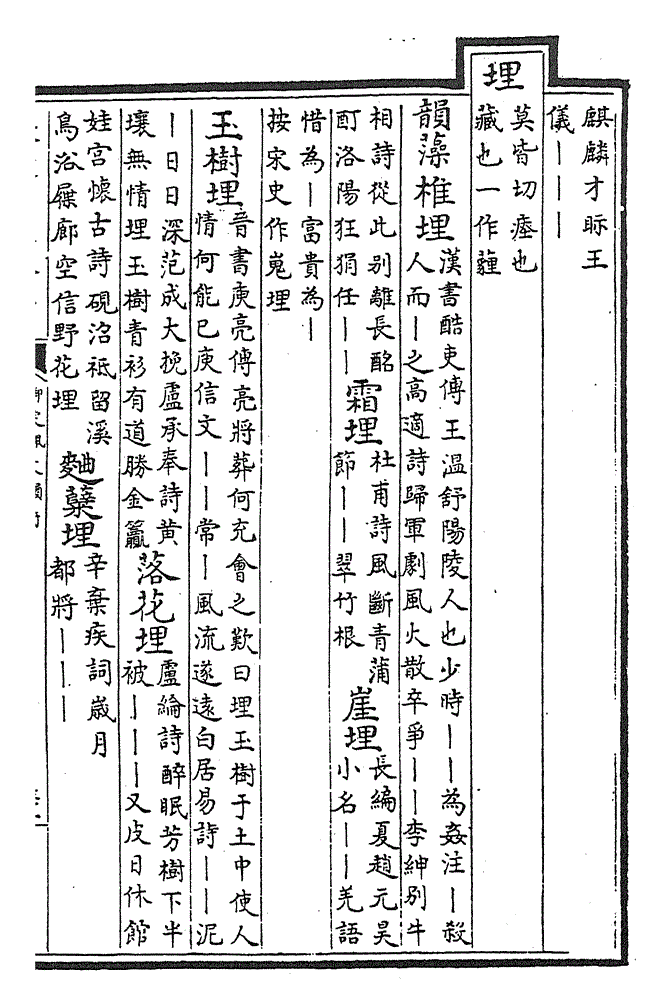 麒麟才眎王
儀｜｜｜
埋
莫皆切瘞也
藏也一作薶
韻藻椎埋
漢書酷吏傳王溫舒陽陵人也少時｜｜為姦注｜殺
人而｜之高適詩歸軍劇風火散卒爭｜｜李紳別牛
相詩從此別離長酩
酊洛陽狂狷任｜｜
霜埋
杜甫詩風斷青蒲
節｜｜翠竹根
崖埋
長編夏趙元昊
小名｜｜羌語
惜為｜富貴為｜
按宋史作嵬埋
玉樹埋
晉書庾亮傳亮將葬何充會之歎曰埋玉樹于土中使人
情何能已庾信文｜｜常｜風流遂遠白居易詩｜｜泥
｜日日深范成大挽盧承奉詩黄
壤無情埋玉樹青衫有道勝金籯
落花埋
盧綸詩醉眠芳樹下半
被｜｜｜又皮日休館
娃宮懷古詩硯沼祗留溪
鳥浴屧廊空信野花埋
麯蘖埋
辛棄疾詞歲月
都將｜｜｜